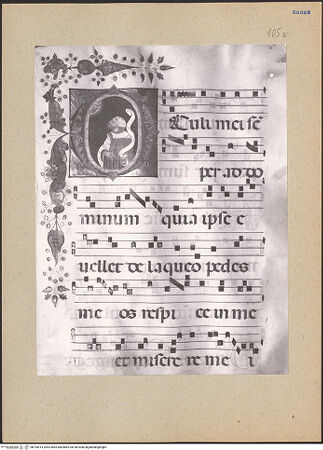 105v
Oculi mei sē
per ad do
minum quia ipse e
vellet de laqueo pedes
me os respi ce in me
et misere re me i